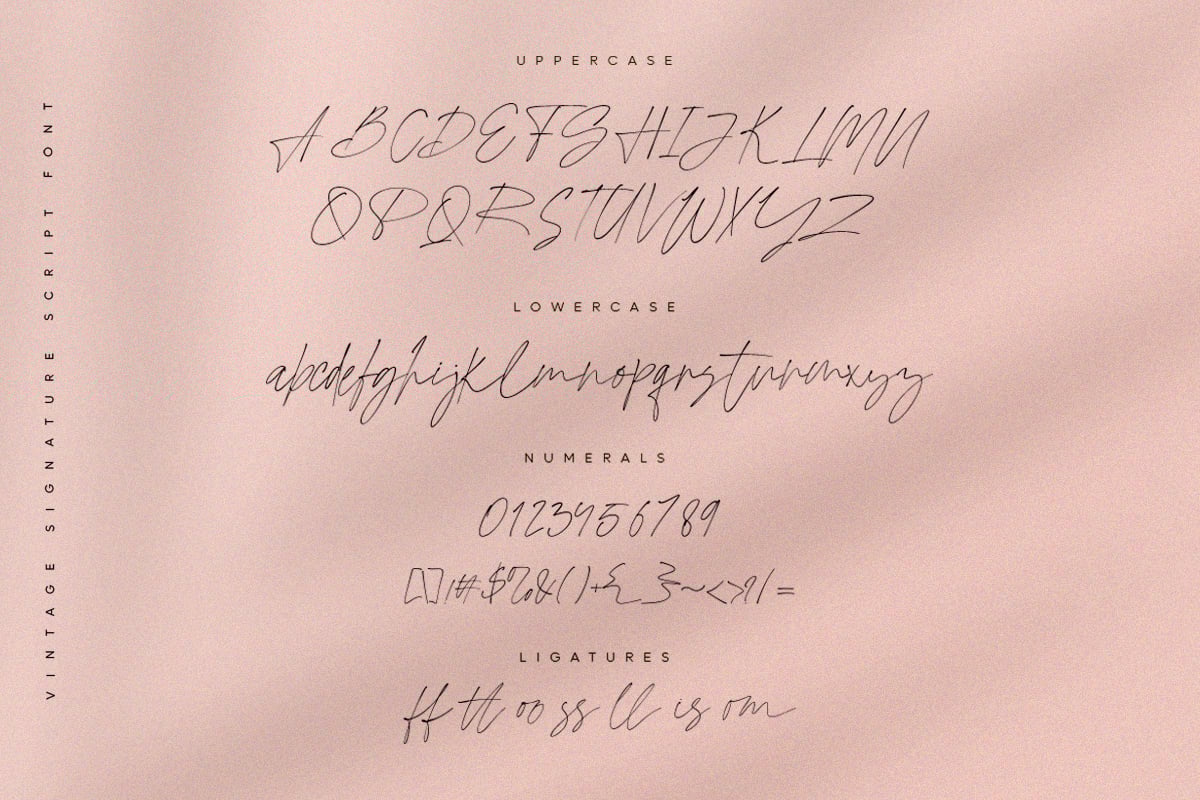 VINTAGE SIGNATURE SCRIPT FONT
UPPERCASE
ABCDEFGHIJKLMN
OPQRSTUVWXYZ
LOWERCASE
abcdefghijklmnopqrstuvwxyz
NUMERALS
0123456789
[\]|#$%&()+{_}~<>?/=
LIGATURES
ff tt oo ss ll is om